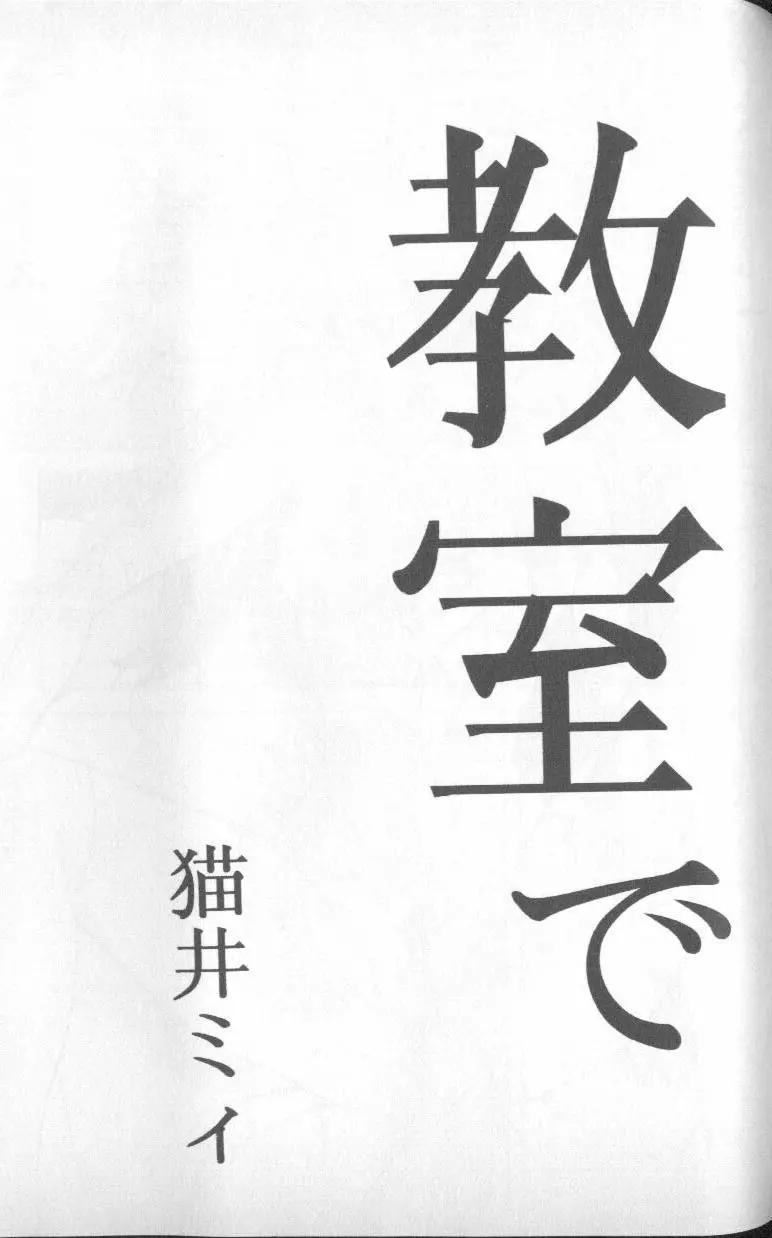 教室で
猫井ミィ